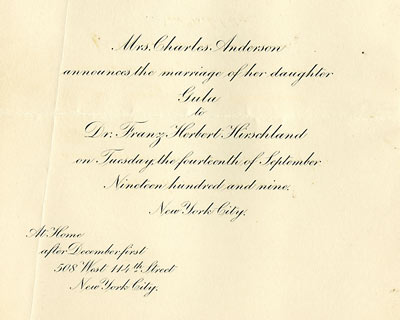 Mrs. Charles Anderson
announces the marriage of her daughter
Gula
to
Dr. Franz Herbert Hirschland
on Tuesday, the fourteenth of September
Nineteen hundred and nine.
New York City.
At Home
after December first
508 West 114th Street
New York City.